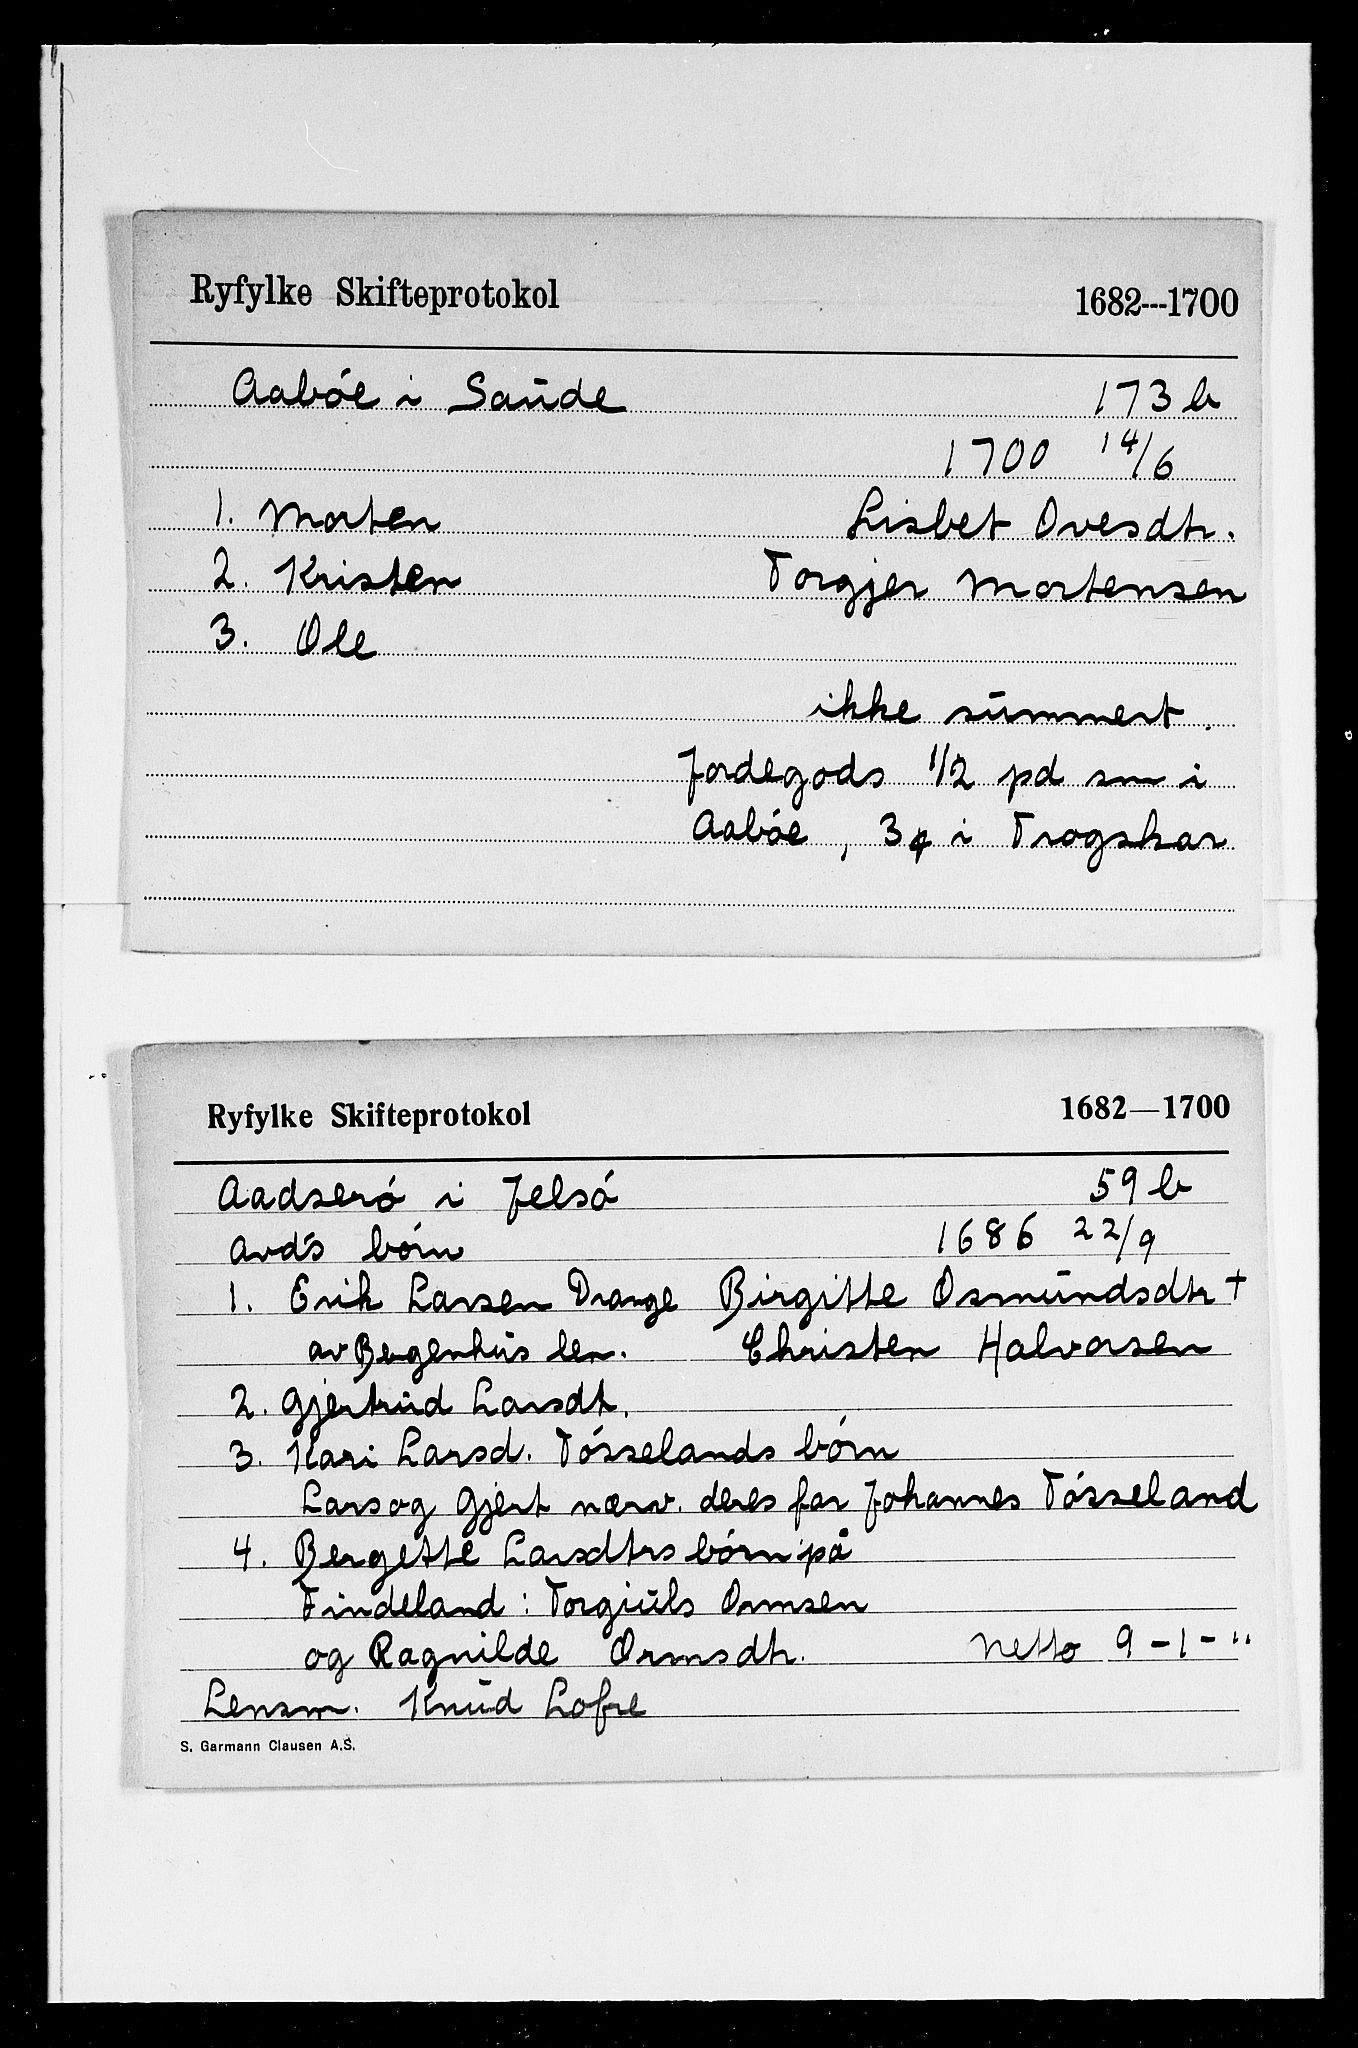 Ryfylke Skifteprotokol 1682---1700
Aabóe i Saūde 173 b
1700 14/6
1. Morten Lisbet Ovesdtr.
2. Kristen Torgjer Mortensen
3. Ole
ikke sūmmert.
Jordegods 1/2 pd sm i
Aabóe, 3 i Trogskar
Ryfylke Skifteprotokol 1682—1700
Aadseró i Jelsó 59 b
avds børn 1686 22/9
1. Erik Larsen Drange Birgitte Osmūndsdtr +
av Bergenhūs len. Christen Halvorsen
2. Gjertrūd Larsdt.
3. Kari Larsd. Tósselands børn
Lars og Gjert nærv. deres far Johannes Tósseland
4. Bergette Larsdtrs børn på
Tindeland : Torgiūls Ormsen
og Ragnilde Ormsdtr. Netto 9 - 1 - "
Lensm. Knūd Lofre
S. Garmann Clausen A.S.